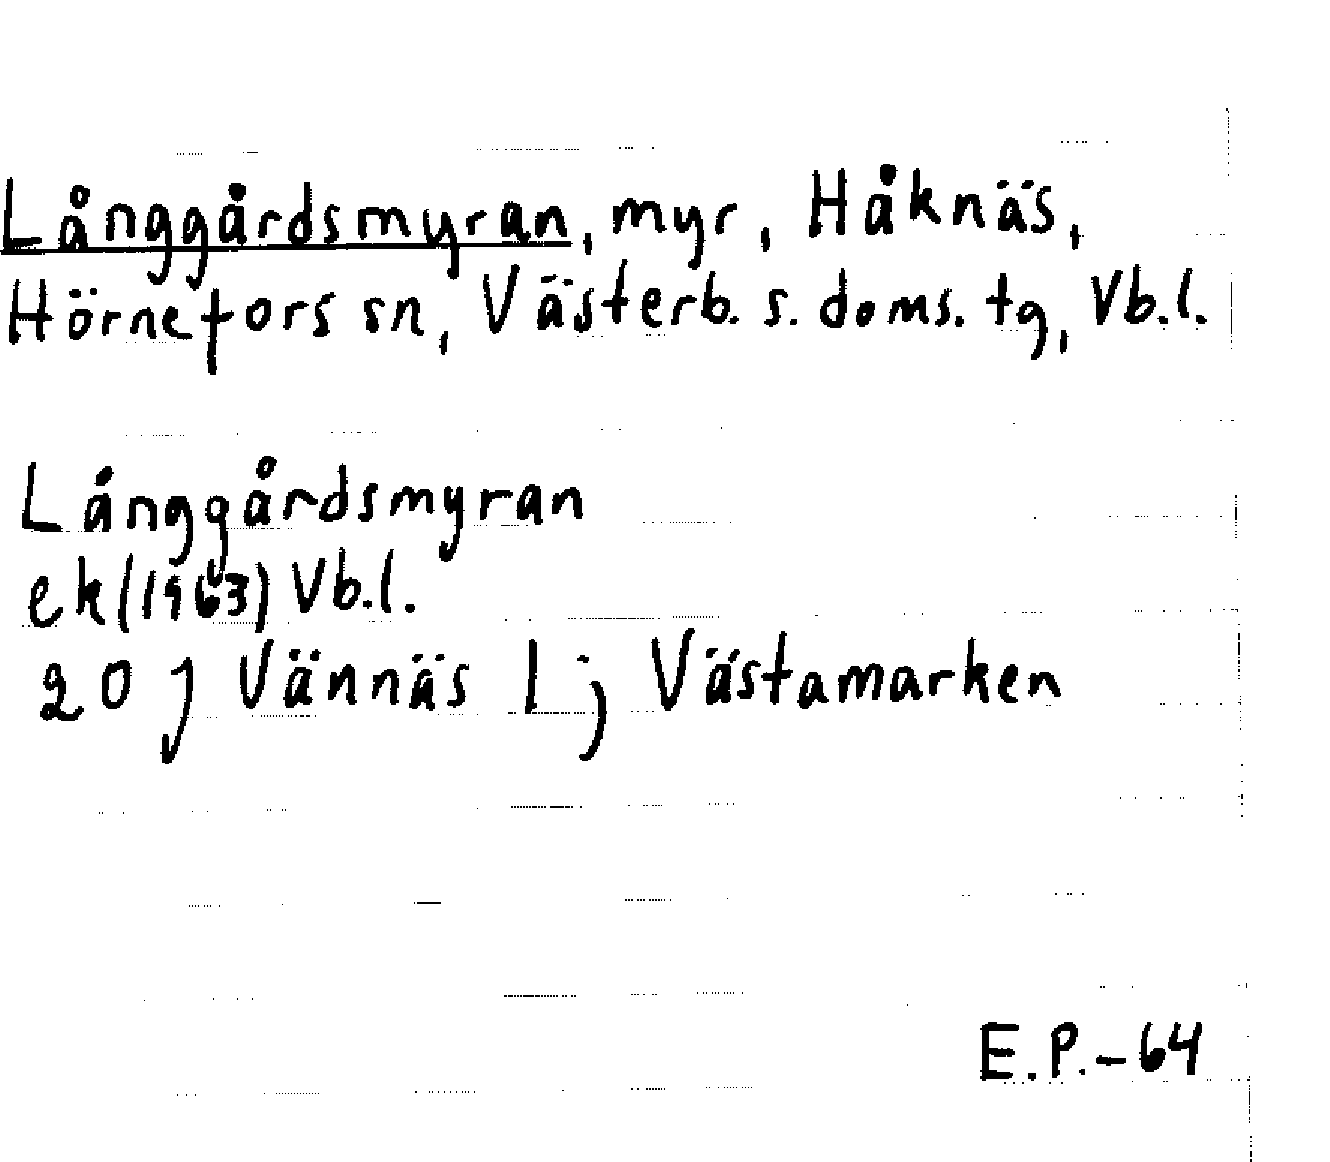 Långgårdsmyran, myr, Håknäs,
Hörnefors sn, Västerb. s. doms. tg, Vb.l.
Långgårdsmyran
ek(1963) Vb.l.
20 J Vännäs I j Västamarken
E.P.-64